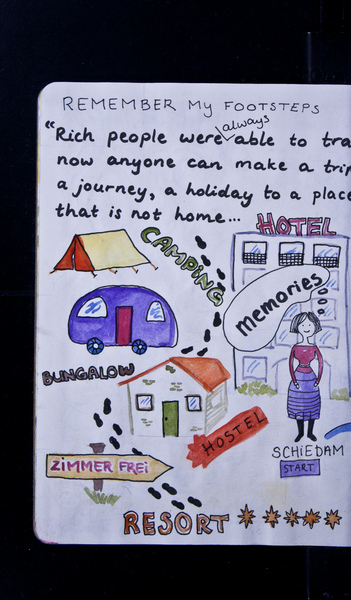 REMEMBER MY FOOTSTEPS
always
"Rich people were able to tra
now anyone can make a trip
a journey, a holiday to a place
that is not home...
HOTEL
CAMPING
memories
BUNGALOW
HOSTEL
SCHIEDAM
START
ZIMMER FREI
RESORT